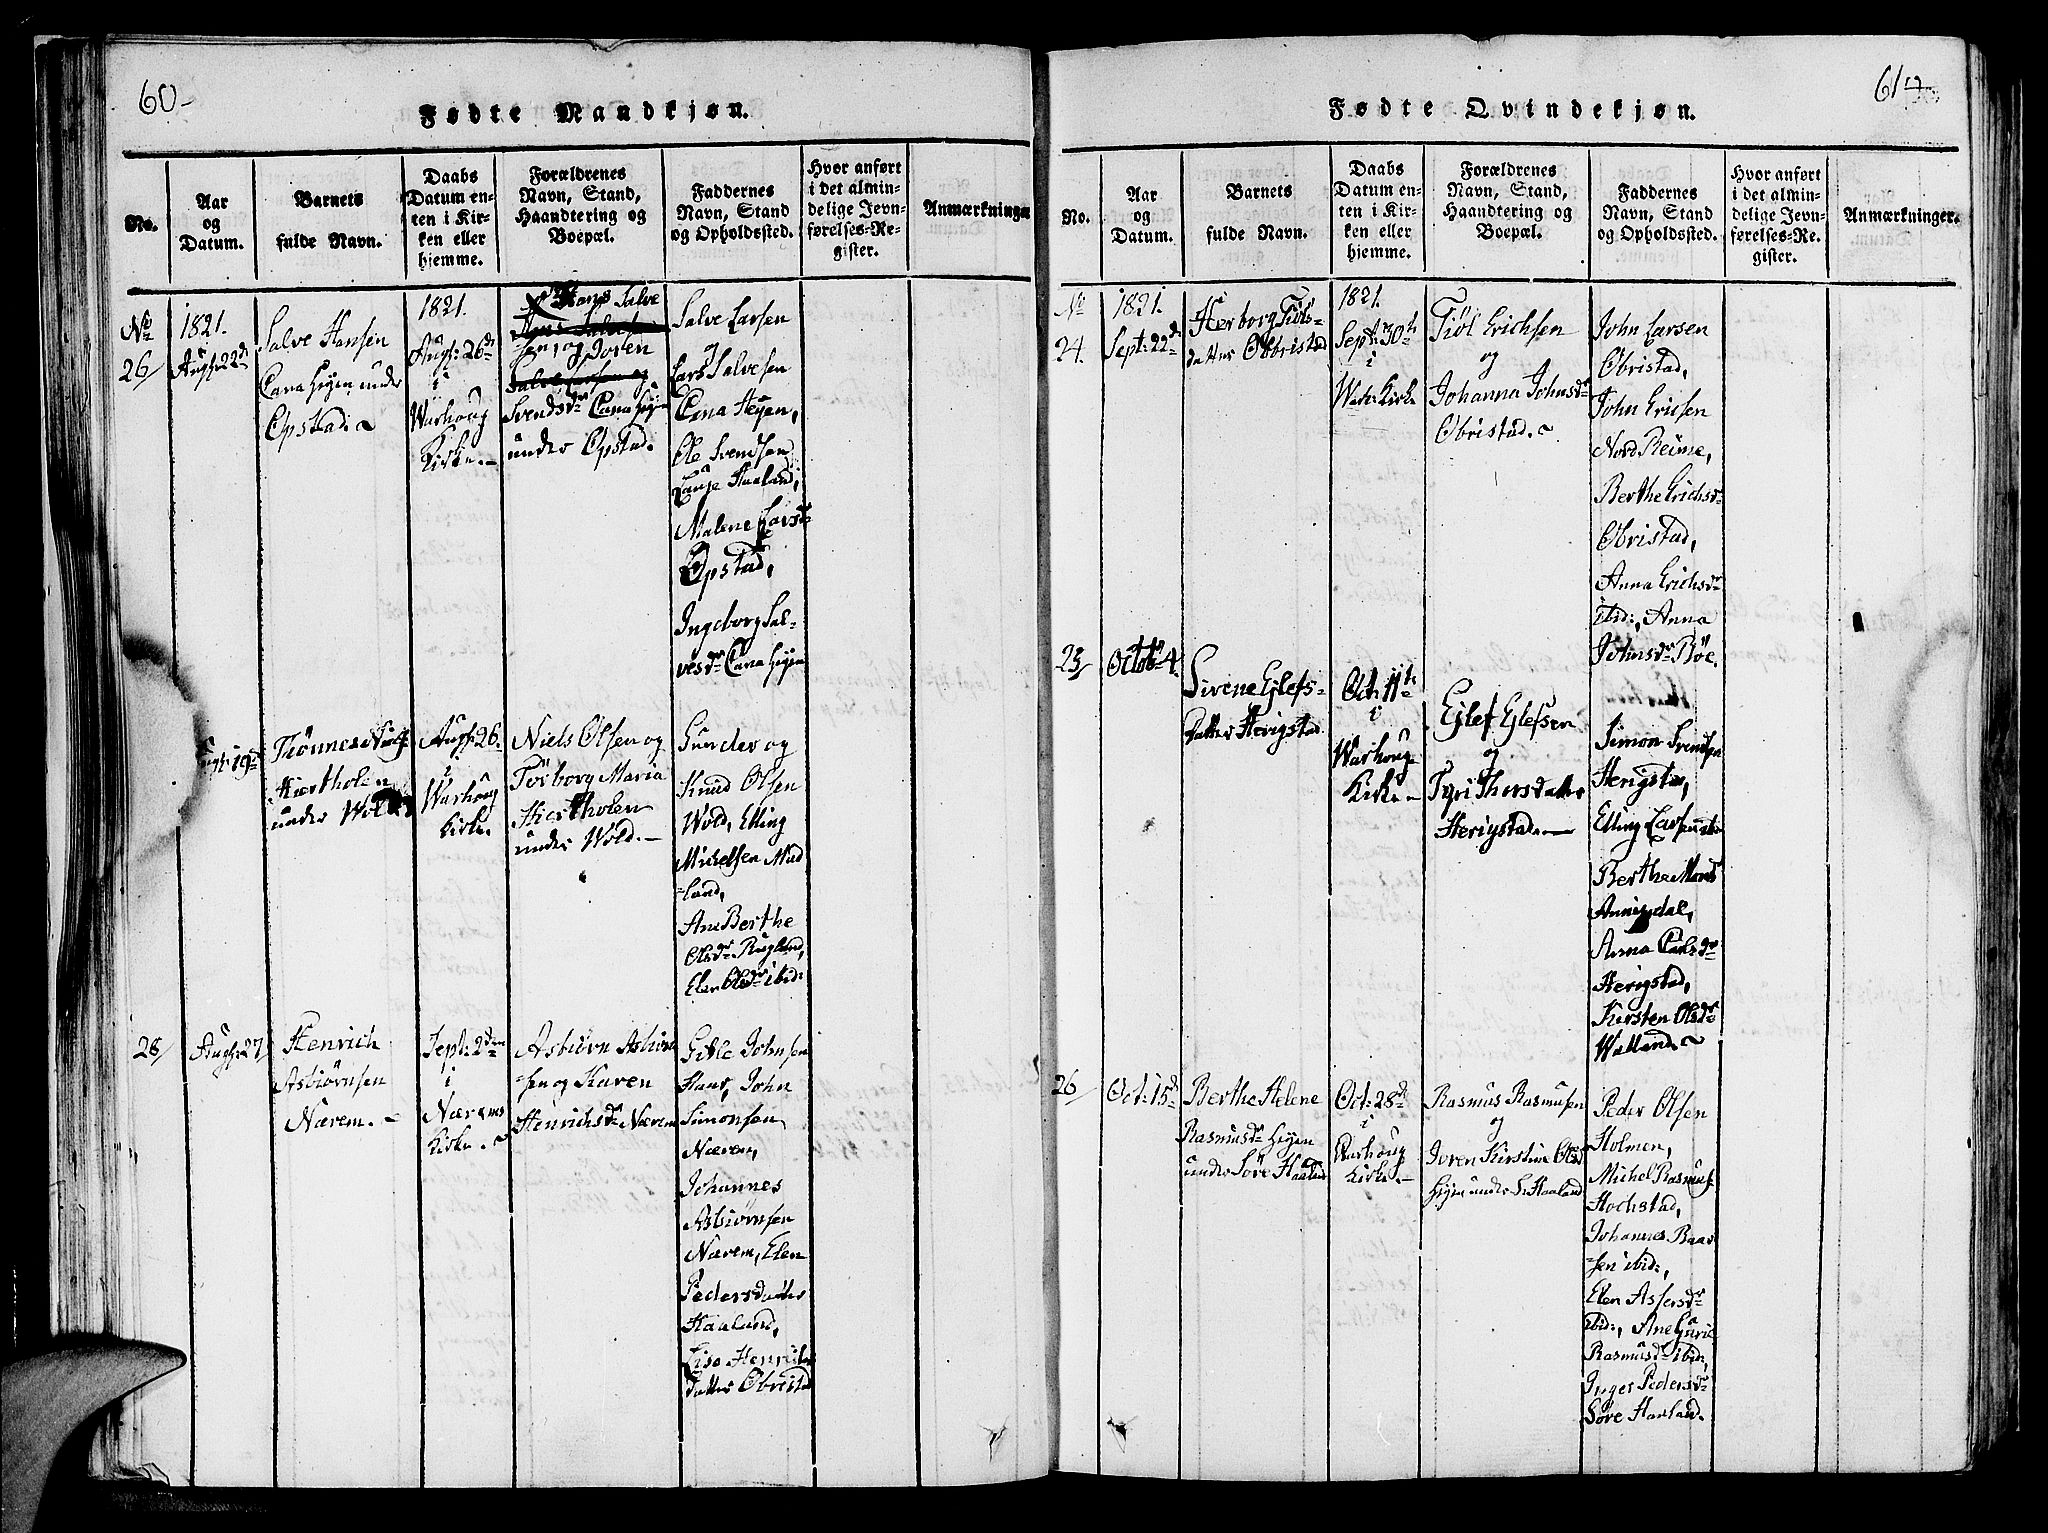 60-
Fødte Mandkjøn.
No.
Aar
og
Datum.
Barnets
fulde Navn.
Daabs
Datum en-
ten i Kir-
ken eller
hjemme.
Forældrenes
Navn, Stand,
Haandtering og
Boepæl.
Faddernes
Navn, Stand
og Opholdssted.
Hvor anført
i det almin-
delige Jevn-
førelses-Re-
gister.
Anmærkninger
No
26/
1821.
Aug: 22d
Salve Hansen
Cana Heyen under
Opstad.
1821.
Aug: 26d
i
Warhoug
Kirke.-
Hans Salve
sen, og Joren
Salve Larsen og
Svendsdr Cana Heyen
under Opstad.
Salve Larsen
og
Lars Salvesen
Cana Heyen,
Ole Svendsen
Haaland,
Malene Larsdr
Opstad,
Ingeborg Sal-
vesdr Cana Heyen
19d
Tönnes Niels
Hiertholen
under Wold
Aug: 26.
i
Warhoug
Kirke.
Niels Olsen og
Törborg Maria
Hiertholen
under Wold.-
Gunder og
Knud Olsen
Wold, Elling
Michelsen Mud
=land,
Ane Berthe
Olsdr Rugland,
Elen Olsdr ibid:
28/
Aug: 27
Henrich
Asbiörnsen
Nærem.-
Sept: 2den
i
Nærems
Kirke.
Asbiörn Asbiörn
sen og Karen
Henrichsdr Nærem
Gitle Johnsen
Haar, John
Simonsen
Nærem,
Johannes
Asbiörnsen
Nærem, Elen
Pedersdatter
Haaland,
Lisa Henrichs
datter Obrestad
61
Fødte Qvindekjøn.
No.
Aar
og
Datum.
Barnets
fulde Navn.
Daabs
Datum en-
ten i Kir-
ken eller
hjemme.
Forældrenes
Navn, Stand,
Haandtering og
Boepæl.
Faddernes
Navn, Stand
og Opholdssted.
Hvor anført
i det almin-
delige Jevn-
førelses-Re-
gister.
Anmærkninger.
No
24.
1821.
Sept: 22d
Herborg Tiöls-
datter Obristad
1821.
Sept: 30te
i
Warh: Kirke
Tiöl Erichsen
og
Johanna Johnsdr
Obristad.
John Larsen
Obristad,
John Ericsen
Nord Reime,
Berthe Erichsdr
Obristad,
Anna Erichsdr
ibid:, Anna
Johnsdr Böe.
25/
Octobr 4.
Sirene Ejlefs-
datter Herigstad
Oct: 11te
i
Warhoug
Kirke-
Ejlef Ejlefsen
og
Tyri Thorsdatter
Herigstad.-
Simon Svendsen
Herigstad,
Elling Larsen
Berthe Mons
Anna
Herigstad,
Kirsten Olsdr
Welland.
26
Oct: 15d
Berthe Helene
Rasmusdr Heyen
under Söre Haaland
Oct: 28d
i
Warhoug
Kirke.-
Rasmus Rasmusen
og
Joren Kirstine Olsd
Heyen under S. Haaland
Peder Olsen
Holmen,
Michel Rasmus
Hochstad,
Johannes Baar
=sen ibid:,
Elen Assersdr
ibid:, Ane Guri
Rasmusdr ibid:,
Inger Pedersdr
Söre Haaland.